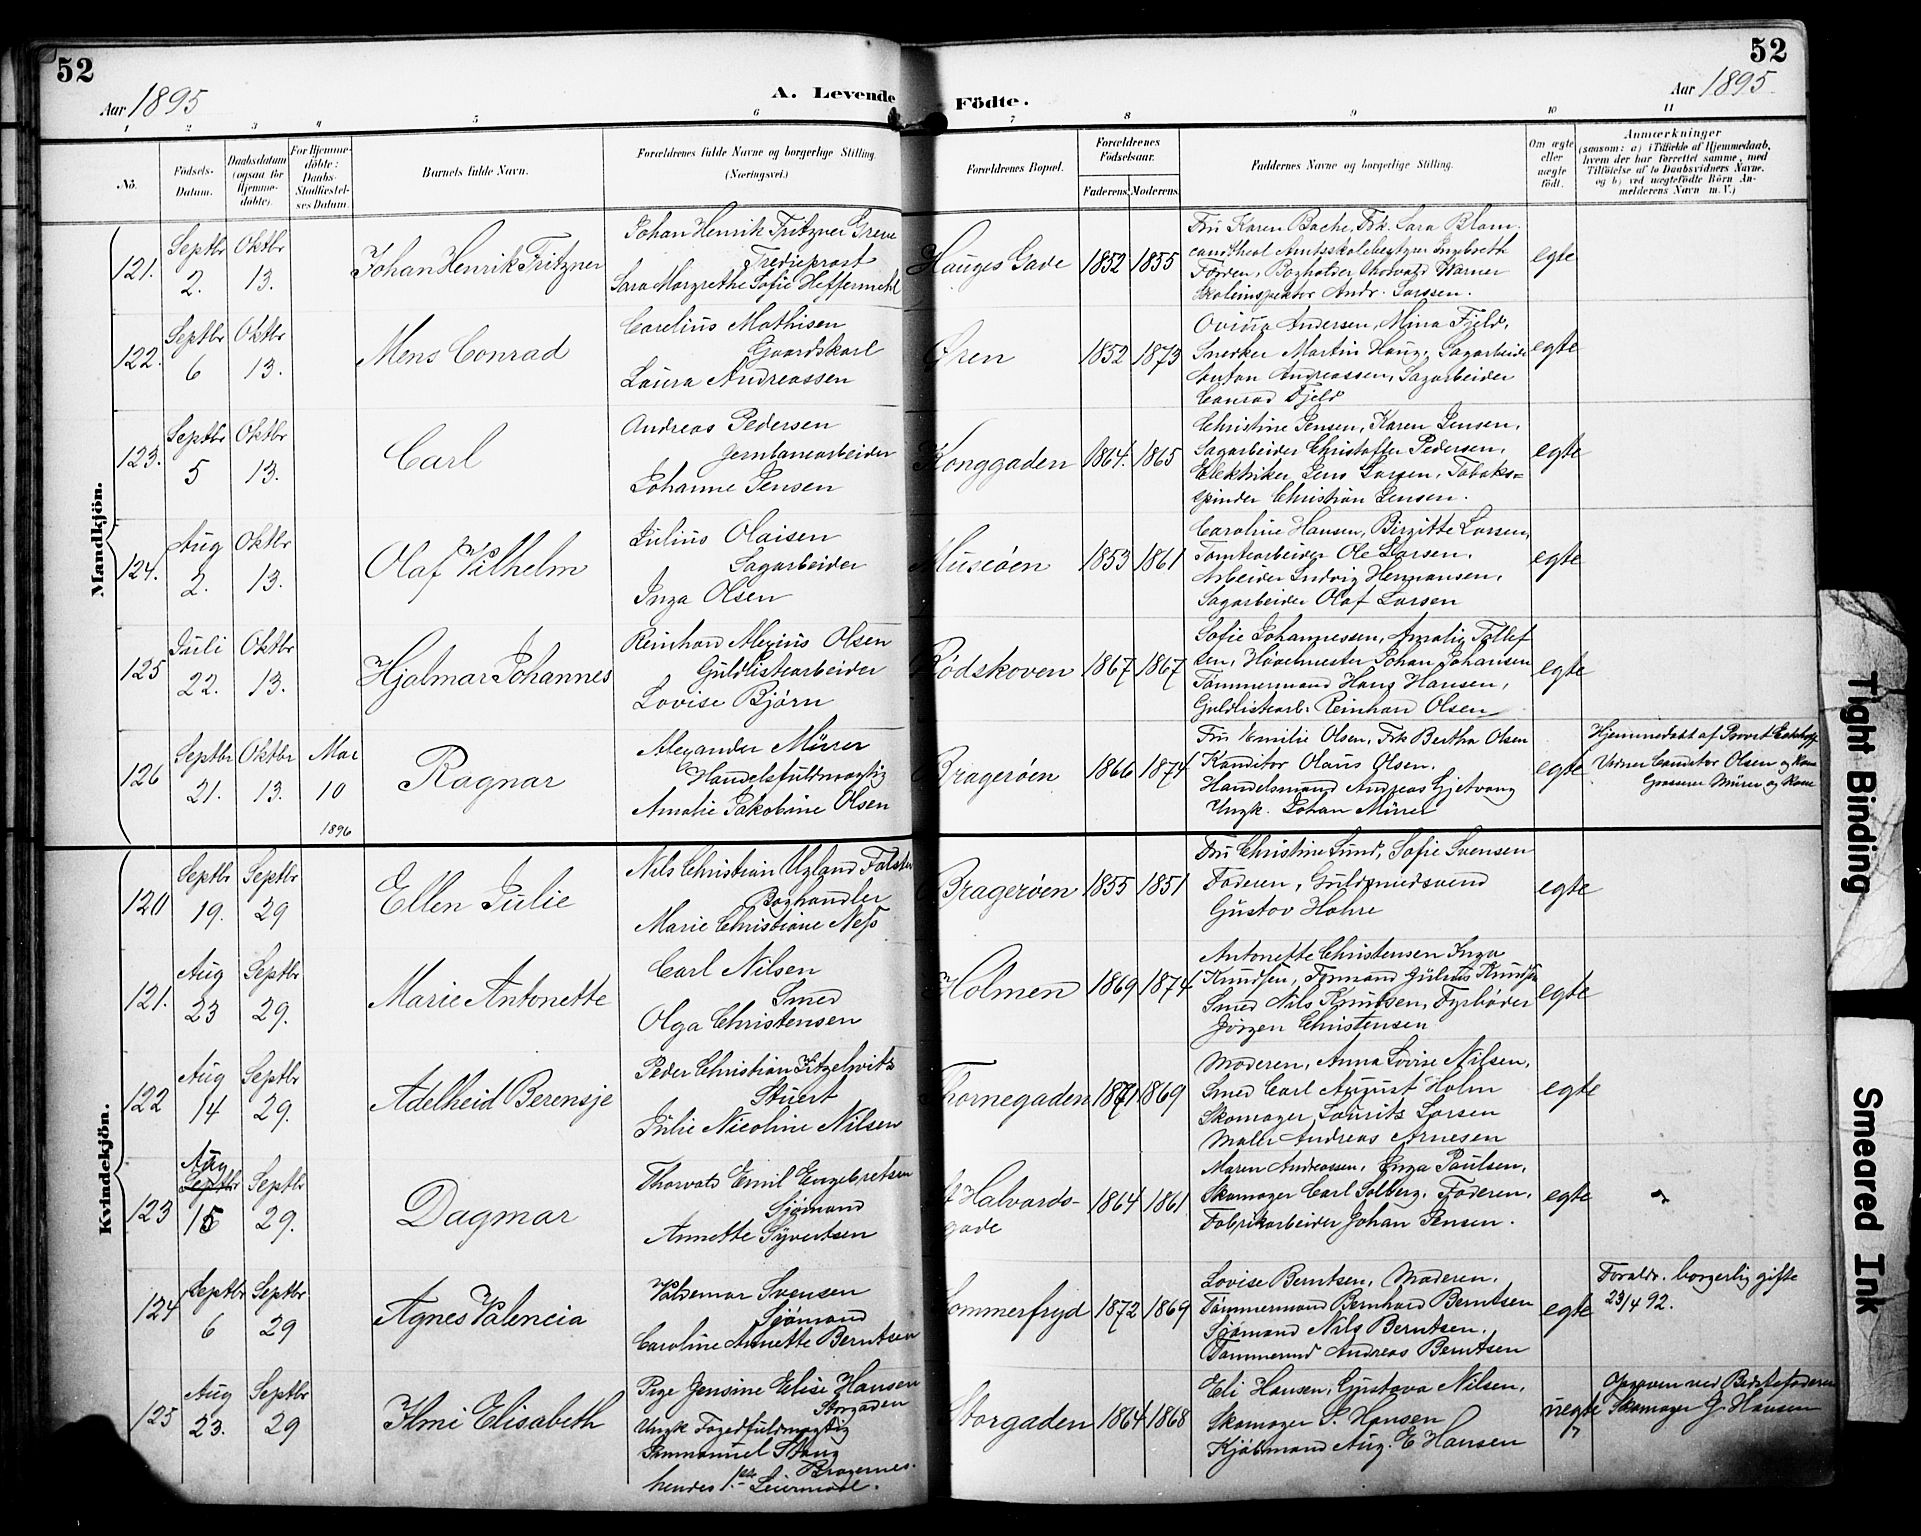 52
52
Aar 1895
A. Levende Födte.
Aar 1895.
1 2 3 4 5 6 7 8 9 10 11
No.
Födsels-Datum.
Daabsdatum (ogsaa for Hjemme-döbte).
For Hjemme-döbte: Daabs-Stadfæstel-ses Datum.
Barnets fulde Navn.
Forældrenes fulde Navne og borgerlige Stilling.
(Næringsvei.)
Forældrenes Bopæl.
Forældrenes Födselsaar.
Faderens. Moderens.
Faddernes Navne og borgerlige Stilling.
Om ægte eller uægte födt.
Anmærkninger
(saasom: a) i Tilfælde af Hjemmedaab,
hvem der har forrettet samme, med
Tilföielse af to Daabsvidners Navne.
og b) ved uægtefödte Börn An-
melderens Navn m. V.)
Mandkjön.
121. Septbr 2. Oktbr 13. Johan Henrik Fritzner
Johan Henrik Fritzner Greve
Fredieprost
Sara Margrethe Sofie Heffermehl
Hauges Gade 1852 1855
Fru Karen Bache, Frk. Sara Blom.
cam theol Amtsskolebestyrer Ingebreth
Faderen, Bogholder Thorvald Warner
Skoleinspektør Andr. Larssen.
egte
122. Septbr 6 Oktbr 13. Mens Conrad
Carelius Mathisen
Gaardskarl
Laura Andreassen
Øren 1852 1873
Ovina Andersen, Mina Fjeld,
Snedker Martin Haug, Sagarbeider
Anton Andreassen, Sagarbeider
Conrad Fjeld
egte
123. Septbr 5 Oktbr 13. Carl
Andreas Pedersen
Jernbanearbeider
Johanne Jensen
Konggaden 1864. 1865
Christine Jensen, Karen Jensen,
Sagarbeider Christoffer Pedersen,
Elektriker Jens Larsen, Tobaks-
spinder Christian Jensen.
egte
124. Aug 2. Oktbr 13. Olaf Vilhelm
Julius Olaisen
Sagarbeider
Inga Olsen
Museøen 1853 1861
Caroline Hansen, Birgitte Larsen,
Tomtearbeider Ole Larsen,
Arbeider Ludvig Hermansen,
Sagarbeider Olaf Larsen
egte
125 Juli 22. Oktbr 13. Hjalmar Johannes
Reinhard Alexius Olsen
Guldlistearbeider
Lovise Bjørn
Rødskoven 1867 1867
Sofie Johannessen, Amalie Tollef
sen, Høvelmester Johan Johansen
Tømmermand Hans Hansen,
Guldlistearb. Reinhard Olsen
egte
126 Septbr 21. Oktbr 13. Mar 10 1896 Ragnar
Alexander Mürer
Handelsfuldmægtig
Amalie Jakobine Olsen
Bragerøen 1866 1874
Fru Emilie Olsen, Frk Bertha Olsen
Konditor Olaus Olsen.
Handelsmand Andreas Gjetvang
Ungk. Johan Mürer
egte
Hjemmedøbt af Provst
Vidner Conditor Olsen og Kone
Mürer og Kone
Kvindekjön.
120 Septbr 19. Septbr 29 Ellen Julie
Nils Christian Ugland Falster
Boghandler
Marie Christiane Ness
Bragerøen 1855 1851
Fru Christine Lund, Sofie Svensen
Faderen, Guldsmedsvend
Gustav Hohre
egte
121. Aug 23 Septbr 29. Marie Antonette
Carl Nilsen
Smed
Olga Christensen
Holmen 1869 1874
Antonette Christensen Inga
Knudsen, Formand Julius Knudsen
Smed Nils Knutsen, Fyrbøder
Jørgen Christensen
egte
122 Aug 14 Septbr 29. Adelheid Berensje
Peder Christian Fitzelwitz
Stuert
Julie Nicoline Nilsen
Thornegaden 1871 1869
Moderen, Anna Lovise Nilsen,
Smed Carl August Holm
Skomager Laurits Larsen
Maler Andreas Arnesen
egte
123 Aug Septbr 15 Septbr 29. Dagmar
Thorvald Emil Engebretsen
Sjømand
Annette Syvertsen
St Halvards-
gade 1864 1861
Maren Andreassen, Inga Paulsen,
Skomager Carl Solberg, Faderen,
Fabrikarbeider Johan Jensen.
egte
124 Septbr 6 Septbr 29 Agnes Valencia
Valdemar Svensen
Sjømand
Caroline Annette Berntsen
Sommerfryd 1872 1869
Lovise Berntsen, Moderen,
Tømmermand Bernhard Berntsen
Sjømand Nils Berntsen,
Tømmermd Andreas Berntsen
egte
Foraldr. borgerlig gifte
23/4 92.
125 Aug 23. Septbr 29 Ilmi Elisabeth
Pige Jensine Elise Hansen
Storgaden
Ungk Fogedfuldmægtig
Immanuel Stang
Bragernes.
hendes 1ste Leiermaal.
Storgaden 1864 1868
Eli Hansen, Gustava Nilsen,
Skomager J. Hansen
Kjøbmand Aug. E Hansen
uegte
Opgiven ved Bedstefaderen
Skomager J. Hansen
Tight Binding
Smeared Ink